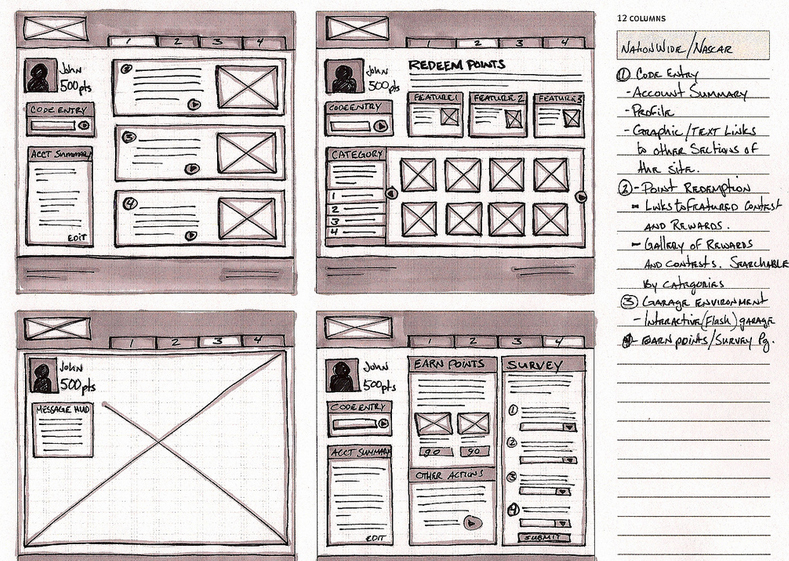 1 2 3 4
John
500pts
CODE ENTRY
ACCT SUMMARY
EDIT
2
3
4
1 2 3 4
John
500pts
CODE ENTRY
REDEEM POINTS
FEATURE 1 FEATURE 2 FEATURE 3
CATEGORY
1
2
3
4
1 2 3 4
John
500pts
MESSAGE HUD
1 2 3 4
John
500pts
CODE ENTRY
ACCT SUMMARY
EDIT
EARN POINTS
OTHER ACTIONS
SURVEY
1
2
3
4
SUBMIT
12 COLUMNS
NATIONWIDE/NASCAR
① CODE ENTRY
- ACCOUNT SUMMARY
- PROFILE
- GRAPHIC/TEXT LINKS
to other SECTIONS of
the site.
② - POINT REDEMPTION
- LINKS to FEATURED CONTEST
AND REWARDS.
- GALLERY OF REWARDS
AND CONTESTS. SEARCHABLE
by CATEGORIES
③ GARAGE ENVIRONMENT
- INTERACTIVE (Flash) garage
④ - EARN POINTS/SURVEY Pg.